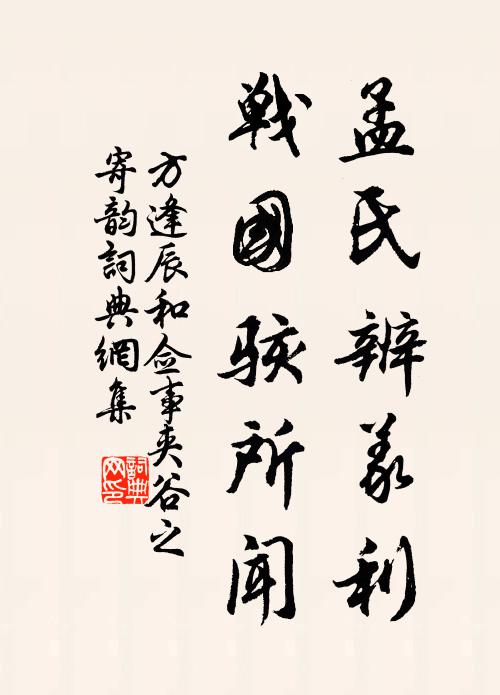 孟氏辨義利
戰國駭所聞
方逢辰和僉事夾谷之
寄韵詞典網集
詞典
网印